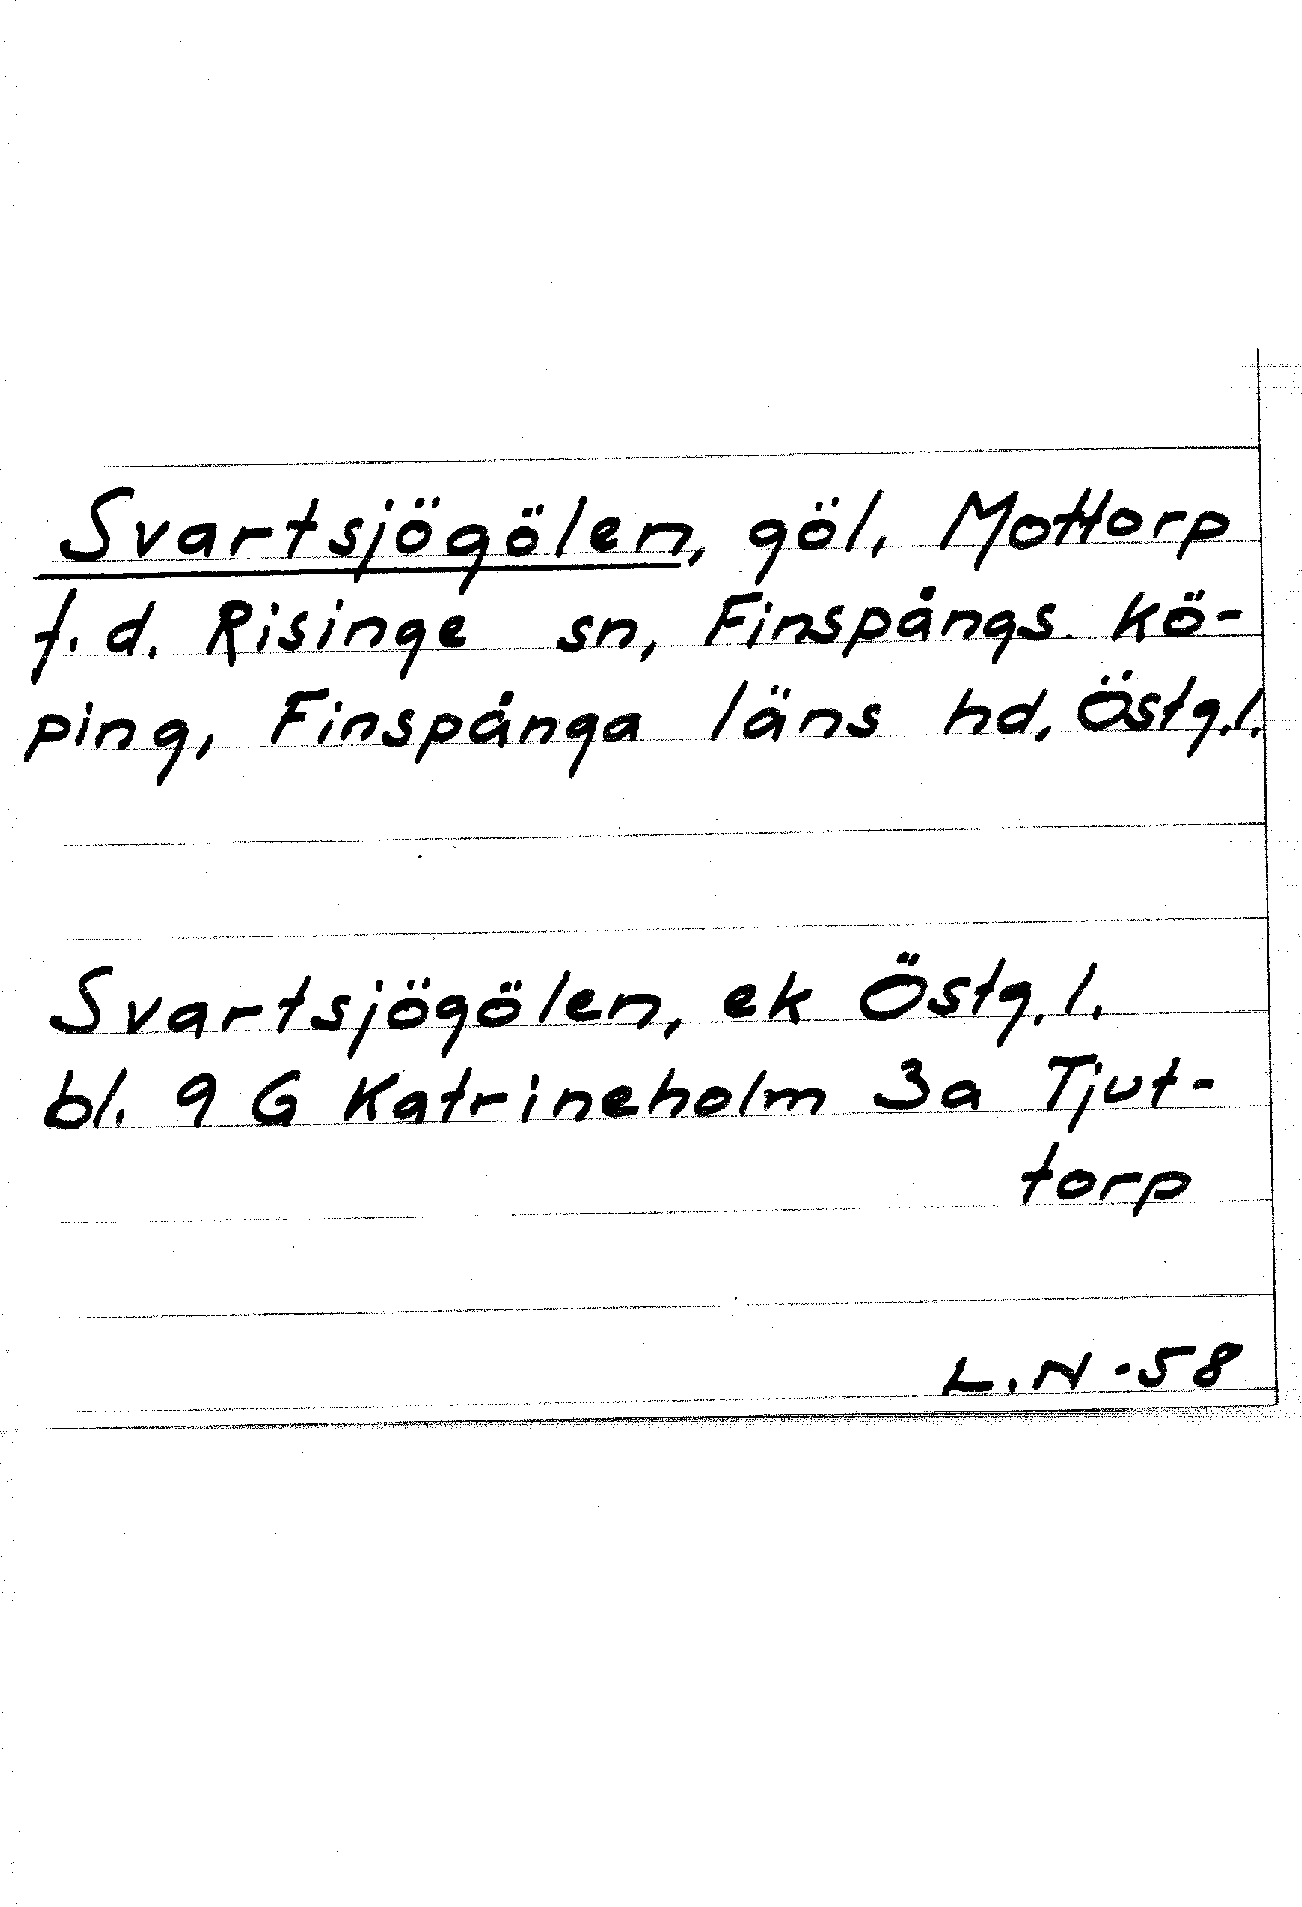 Svartsjögölen, göl, Mottorp
f.d. Risinge sn, Finspångs kö-
ping, Finspånga läns hd, Östg.l.
Svartsjögölen, ek Östg.l.
bl. 9 G Katrineholm 3a Tjut-
torp
L.N -58